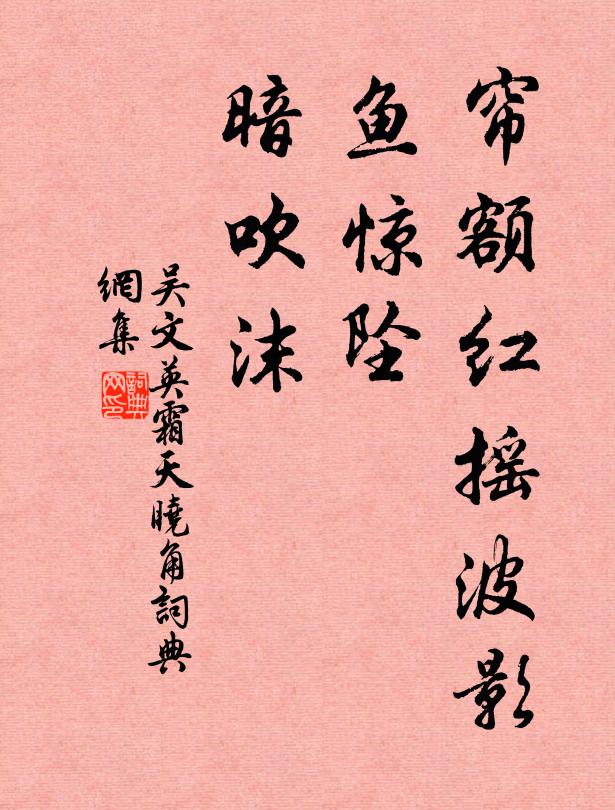 帘额红摇波影
鱼惊坠
暗吹沫
吴文英霜天曉角詞典
網集
詞典
网印